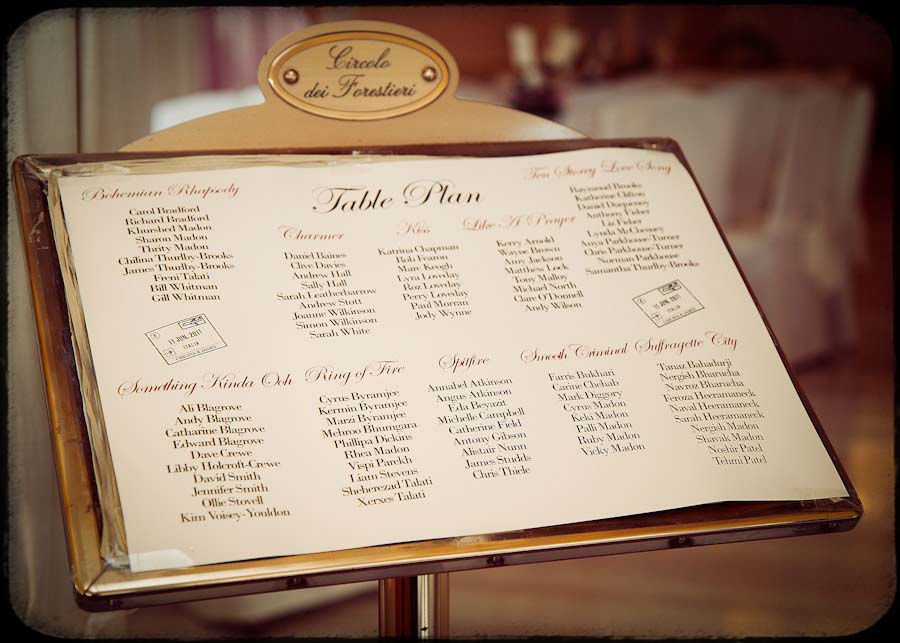 Circolo
dei Forestieri
Table Plan
Bohemian Rhapsody
Carol Bradford
Richard Bradford
Khurshed Madon
Sharon Madon
Thrity Madon
Chilina Thurlby-Brooks
James Thurlby-Brooks
Freni Talati
Bill Whitman
Gill Whitman
Charmer
Daniel Baines
Clive Davies
Andrew Hall
Sally Hall
Sarah Leatherbarrow
Andrew Stott
Joanne Wilkinson
Simon Wilkinson
Sarah White
Kiss
Katrina Chapman
Rob Fearon
Marc Keogh
Lyra Loveday
Roz Loveday
Perry Loveday
Paul Morran
Jody Wynne
Like A Prayer
Kerry Arnold
Wayne Brown
Amy Jackson
Matthew Lock
Tony Malloy
Michael North
Clare O'Donnell
Andy Wilson
Ten Storey Love Song
Raymond Brooks
Katherine Clifton
Daniel Duquenoy
Anthony Fisher
Liz Fisher
Lynda McChesney
Anya Parkhouse-Turner
Chris Parkhouse-Turner
Norman Parkhouse
Samantha Thurlby-Brooks
11 JUN. 2011
ITALIA
11 JUN. 2011
ITALIA
Something Kinda Ooh
Ali Blagrove
Andy Blagrove
Catharine Blagrove
Edward Blagrove
Dave Crewe
Libby Holcroft-Crewe
David Smith
Jennifer Smith
Ollie Stovell
Kim Voisey-Youldon
Ring of Fire
Cyrus Byramjee
Kermin Byramjee
Marzi Byramjee
Mehroo Bhumgara
Phillipa Dickins
Rhea Madon
Vispi Parekh
Liam Stevens
Sheherezad Talati
Xerxes Talati
Spitfire
Annabel Atkinson
Angus Atkinson
Eda Beyazit
Michelle Campbell
Catherine Field
Antony Gibson
Alistair Nunn
James Studds
Chris Thiele
Smooth Criminal
Farris Bukhari
Carine Chehab
Mark Diggory
Cyrus Madon
Keki Madon
Palli Madon
Ruby Madon
Vicky Madon
Suffragette City
Tanaz Bahadurji
Nergish Bharucha
Navroz Bharucha
Feroza Heeramaneck
Naval Heeramaneck
Sarah Heeramaneck
Nergish Madon
Shavak Madon
Noshir Patel
Tehmi Patel